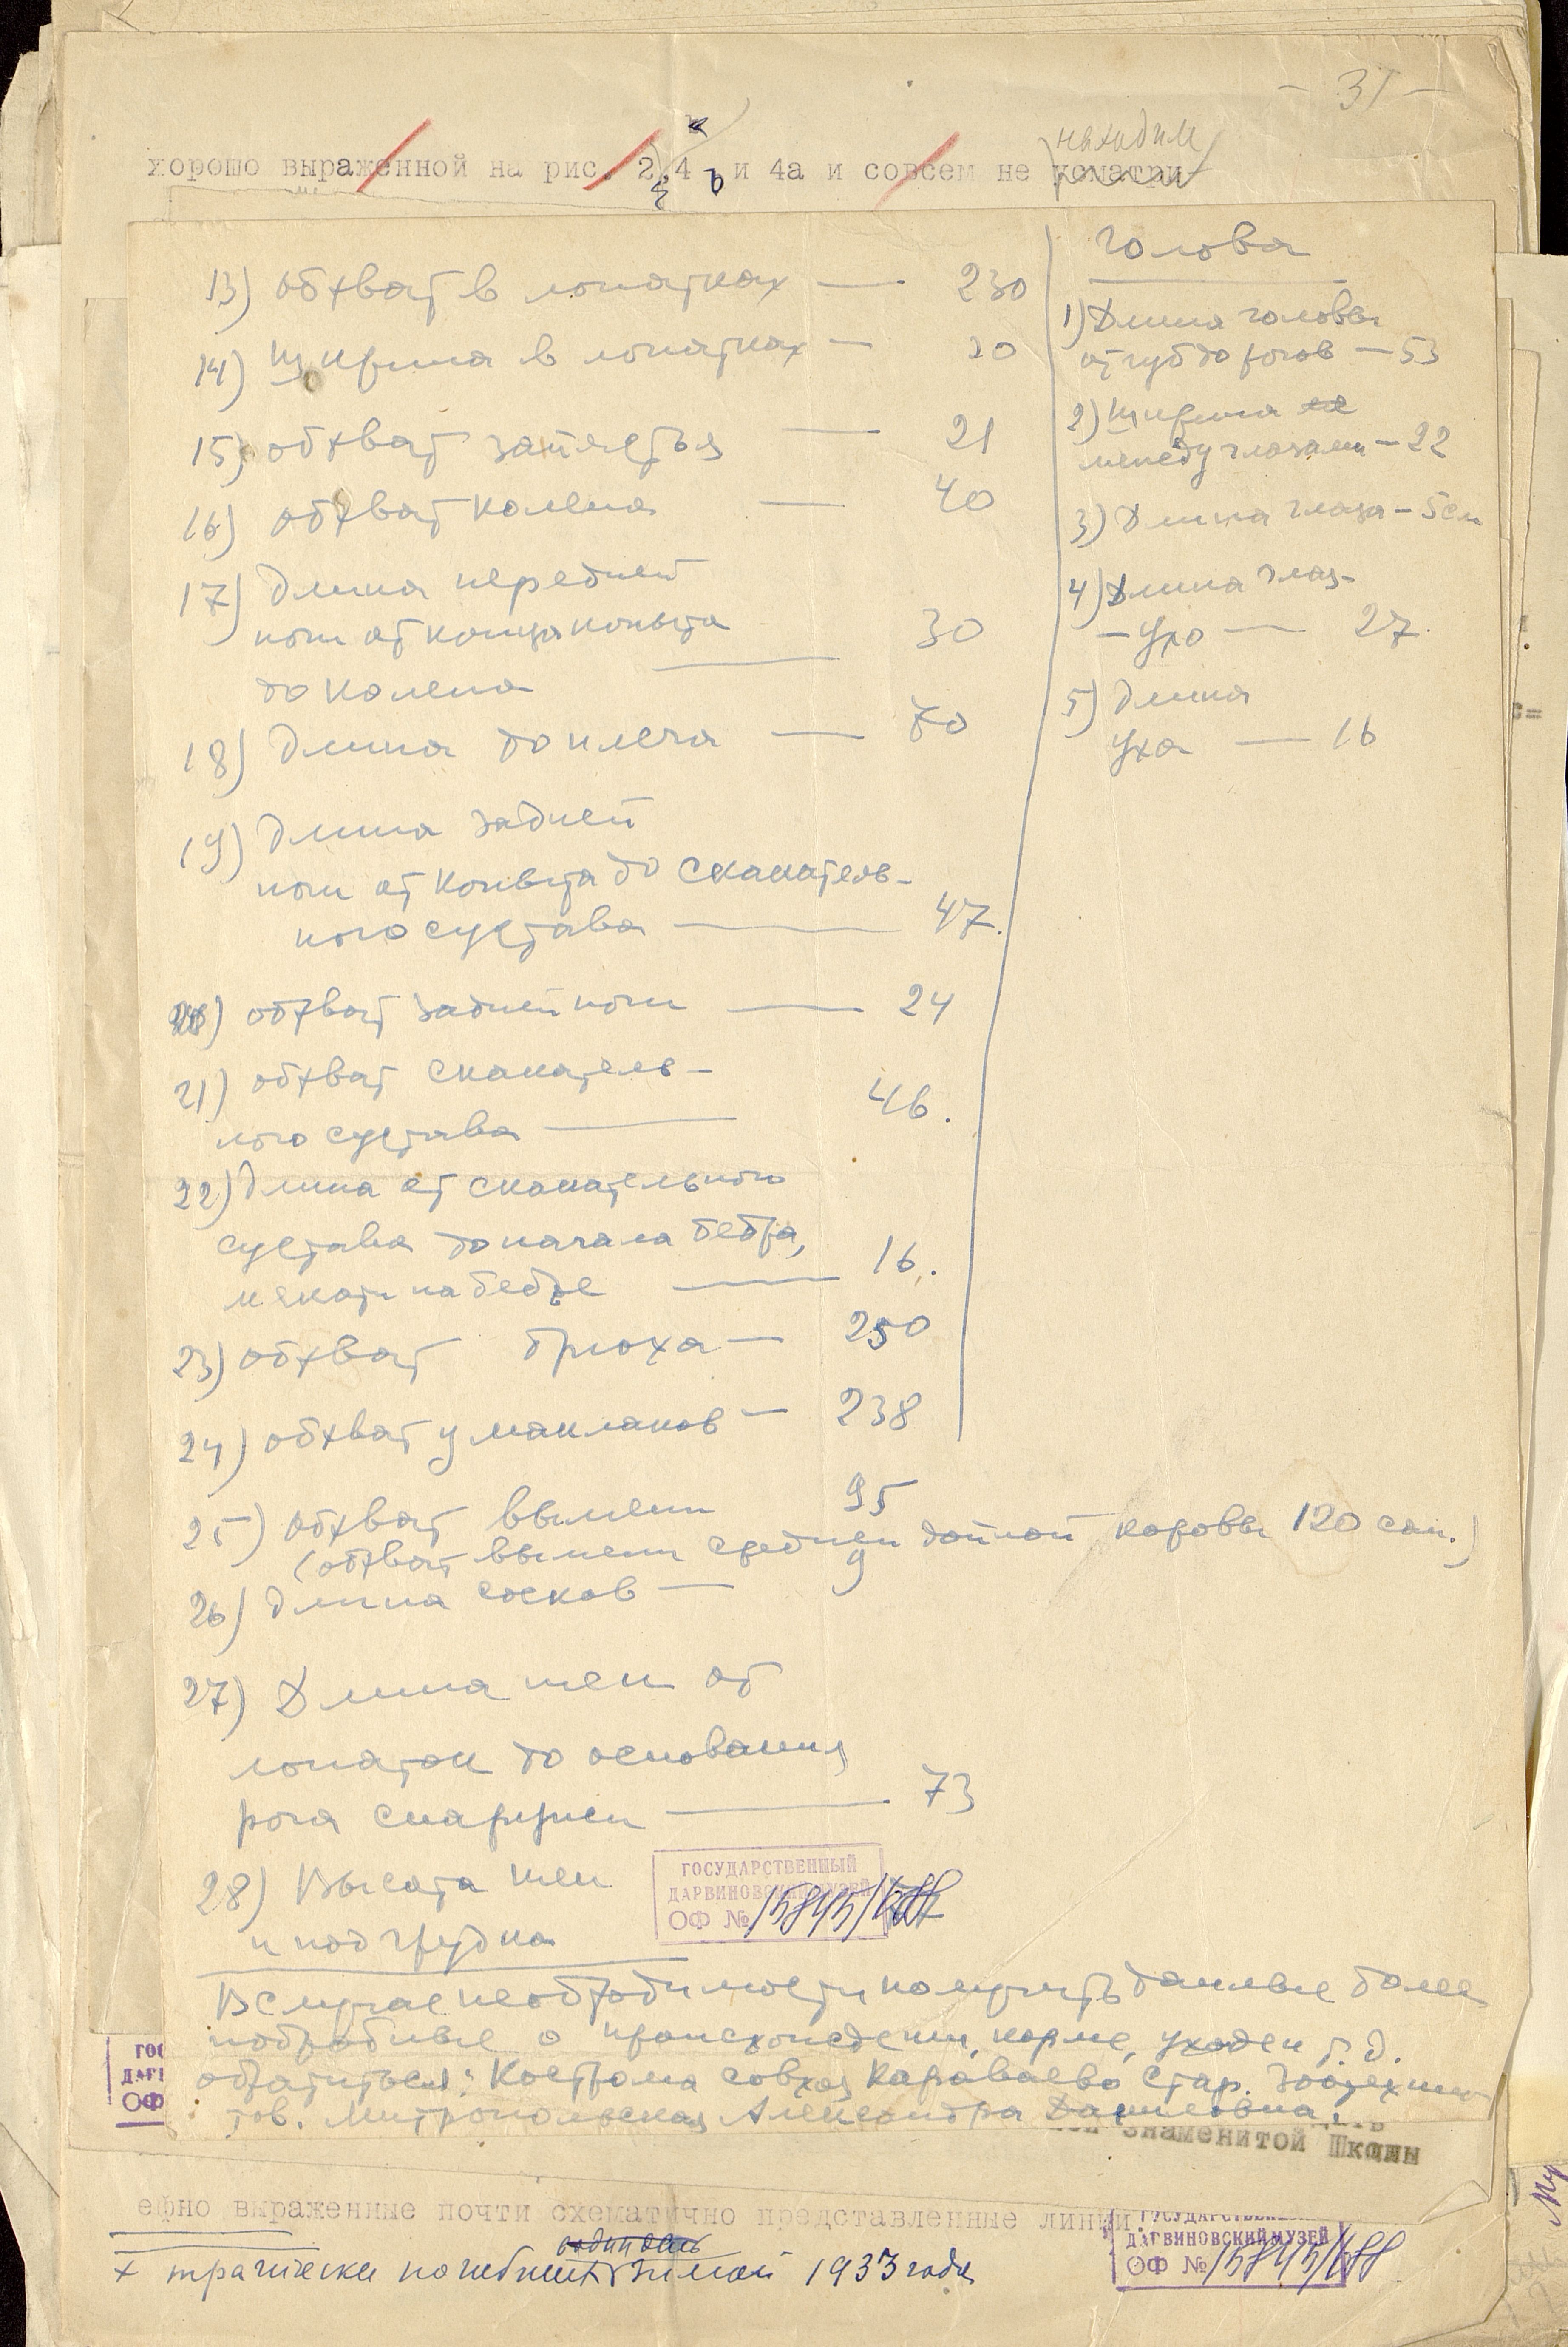 - 31 -
находим
хорошо выраженной на рис. 2, 4 в и 4а и совсем не усматри-
13) обхват в лопатках — 230
14) ширина в лопатках —
15) обхват запястья — 21
16) обхват колена — 40
17) длина передней
ноги от конца копыта
до колена — 30
18) длина до плеча — 70
19) длина задней
ноги от копыта до скакатель-
ного сустава — 47.
20) обхват задней ноги — 24
21) обхват скакатель-
ного сустава — 46.
22) длина от скакательного
сустава до начала бедра,
мякоти на бедре — 16.
23) обхват брюха — 250
24) обхват у маклаков — 238
25) обхват вымени 95
(обхват вымени средней дойной коровы 120 сан.)
26) длина сосков — 9
27) Длина шеи от
лопаток до основания
рога снаружи — 73
28) Высота шеи
и подгрудка
Голова
1) Длина головы
от губ до рогов — 53
2) Ширина
между глазами — 22
3) Длина глаза — 5 см
4) Длина глаз-
- ухо — 27.
5) длина
уха — 16
ГОСУДАРСТВЕННЫЙ
ДАРВИНОВСКИЙ МУЗЕЙ
ОФ № 15845/188
В случае необходимости получить данные более
подробные о происхождении, корме, уходе и т.д.
обратиться: Кострома совхоз Караваево Стар. Зоотехник
тов. Митропольская Александра Даниловна.
знаменитой Школы
ефно выраженные почти схематично представленные линии.
х трагически погибшей зимой 1933 года
ГОСУДАРСТВЕННЫЙ
ДАРВИНОВСКИЙ МУЗЕЙ
ОФ № 15845/188